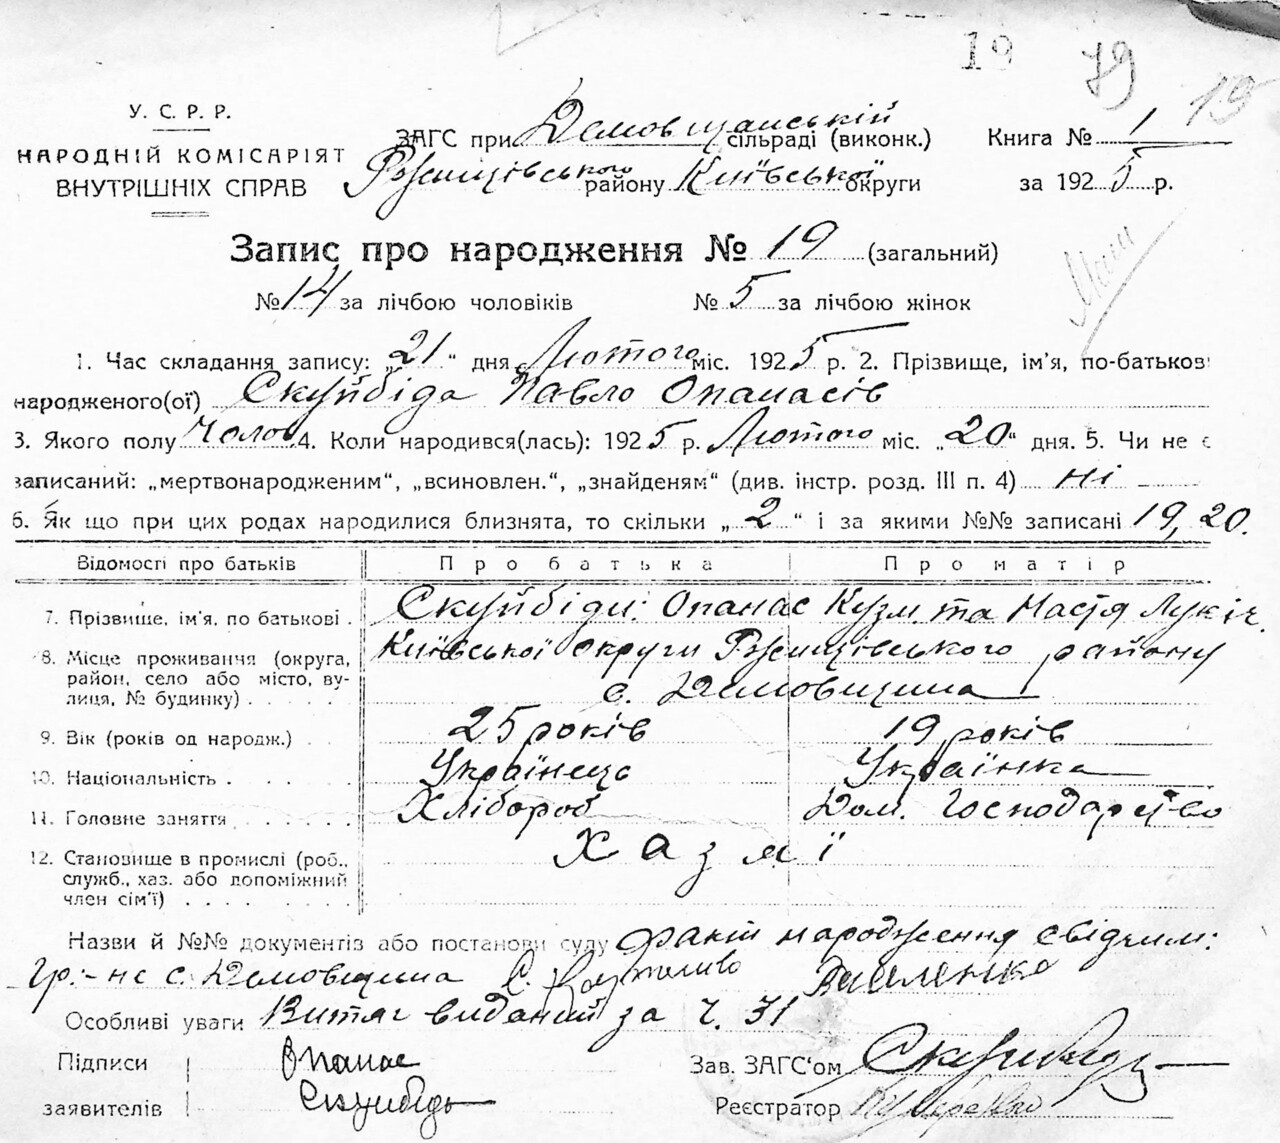 19 79 19
У. С. Р. Р.
НАРОДНІЙ КОМІСАРІЯТ
ВНУТРІШНІХ СПРАВ
ЗАГС при Демовщанській сільраді (виконк.)
Ржищівського району Київської округи
Книга № 1
за 1925 р.
Запис про народження № 19 (загальний)
№ 14 за лічбою чоловіків № 5 за лічбою жінок
1. Час складання запису: „21" дня Лютого міс. 1925 р. 2. Прізвище, ім'я, по-батькові
народженого(ої) Скуйбіда Павло Опанасів
3. Якого полу Чолов 4. Коли народився(лась): 1925 р. Лютого міс. „20" дня. 5. Чи не є
записаний: „мертвонародженим", „всиновлен.", „знайденям" (див. інстр. розд. III п. 4) ні
6. Як що при цих родах народилися близнята, то скільки „2" і за якими №№ записані 19, 20.
Відомості про батьків Про батька Про матір
7. Прізвище, ім'я, по батькові . Скуйбіди: Опанас Кузм. та Настя Лукіч.
8. Місце проживання (округа, район, село або місто, вулиця, № будинку) . . . . . Київської округи Ржищівського району
с. Демовщина
9. Вік (років од народж.) . . 25 років 19 років
10. Національність . . . . Українець Українка
11. Головне заняття . . . . . . Хлібороб Дом. Господарство
12. Становище в промислі (роб., служб., хаз. або допоміжний член сім'ї) . . . . . . . . Хазяї
Назви й №№ документів або постанови суду Факт народження свідчим:
гр.-не с. Демовщина С. Василенко
Особливі уваги Витяг виданий за ч. 31
Підписи заявителів Опанас
Скуибідь
Зав. ЗАГС'ом Скуибідь
Реєстратор